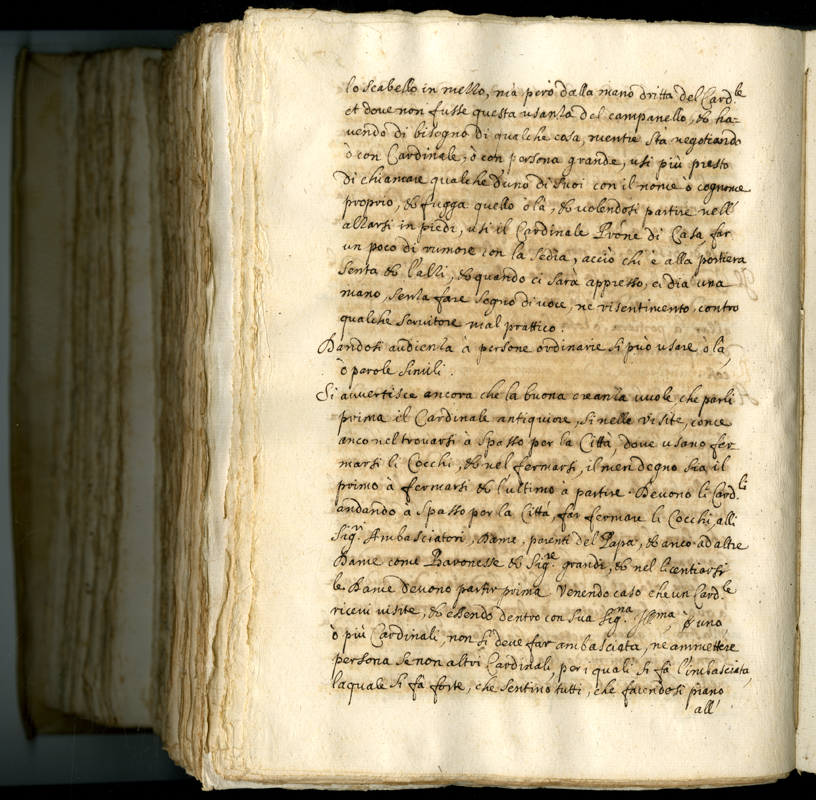 lo scabello in mezzo, mà però dalla mano dritta del Card.le
et dove non fusse questa usanza del campanello, & ha=
vendo di bisogno di qualche cosa, mentre stà negotiando
ò con Cardinale, ò con persona grande, usi più presto
di chiamare qualche d'uno di suoi con il nome ò cognome
proprio, & fugga quello ò là, & volendosi partire nell'
alzarsi in piedi, usi il Cardinale Prone di Casa, far
un poco di rumore con la sedia, acciò chi è alla portiera
senta & l'alzi, & quando ci sarà appresso, ci dia una
mano, senza fare segno di voce, ne risentimento contro
qualche servitore mal prattico.
Dandosi audienza à persone ordinarie si può usare ò là,
ò parole simili.
Si avvertisce ancora che la buona creanza vuole che parli
prima il Cardinale antiquiore, si nelle visite, come
anco nel trovarsi à spasso per la Città, dove usano fer
marsi li Cocchi, & nel fermarsi, il men degno sia il
primo à fermarsi & l'ultimo à partire. Devono li Card.li
andando à spasso per la Città, far fermare li Cocchi, alli
Sig.ri Ambasciatori, Dame, parenti del Papa, & anco ad altre
Dame come Baronesse & Sig.re grandi, & nel licentiarsi
le Dame devono partir prima. Venendo caso che un Card.le
ricevi visite, & essendo dentro con sua Sig.na Ill.ma uno
ò più Cardinali, non si deve far ambasciata, ne ammettere
persona se non altri Cardinali, per i quali si fà l'imbasciata,
la quale si fà forte, che sentino tutti, che facendosi piano
all'